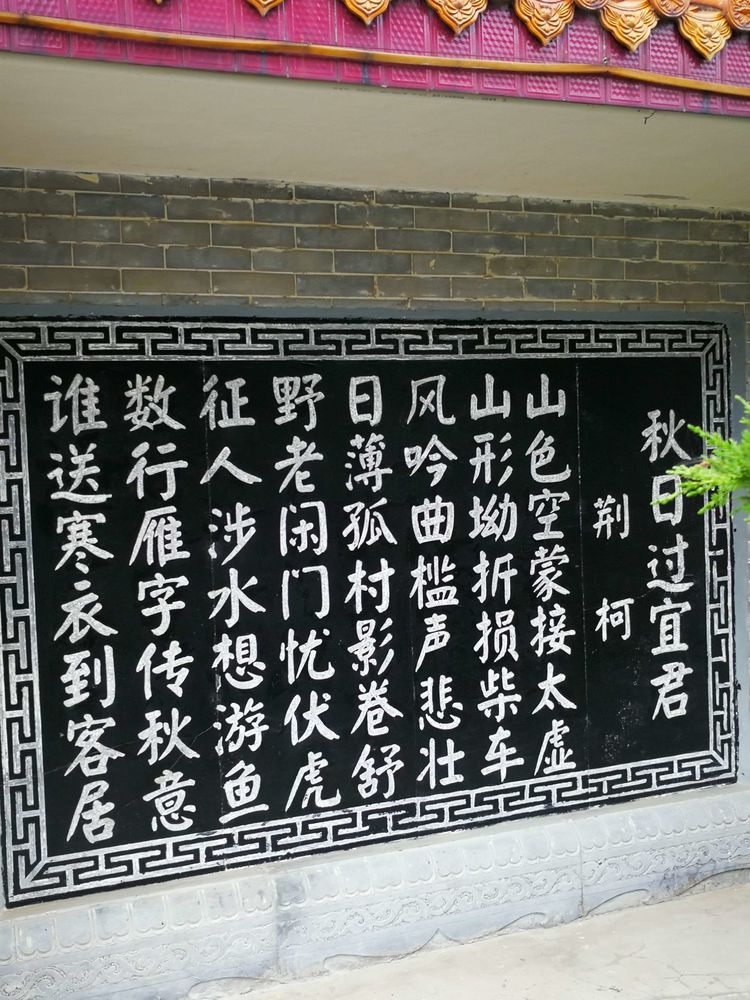 秋日过宜君
荆柯
山色空蒙接太虚
山形坳折损柴车
风吟曲槛声悲壮
日薄孤村影卷舒
野老闲门忧伏虎
征人涉水想游鱼
数行雁字传秋意
谁送寒衣到客居